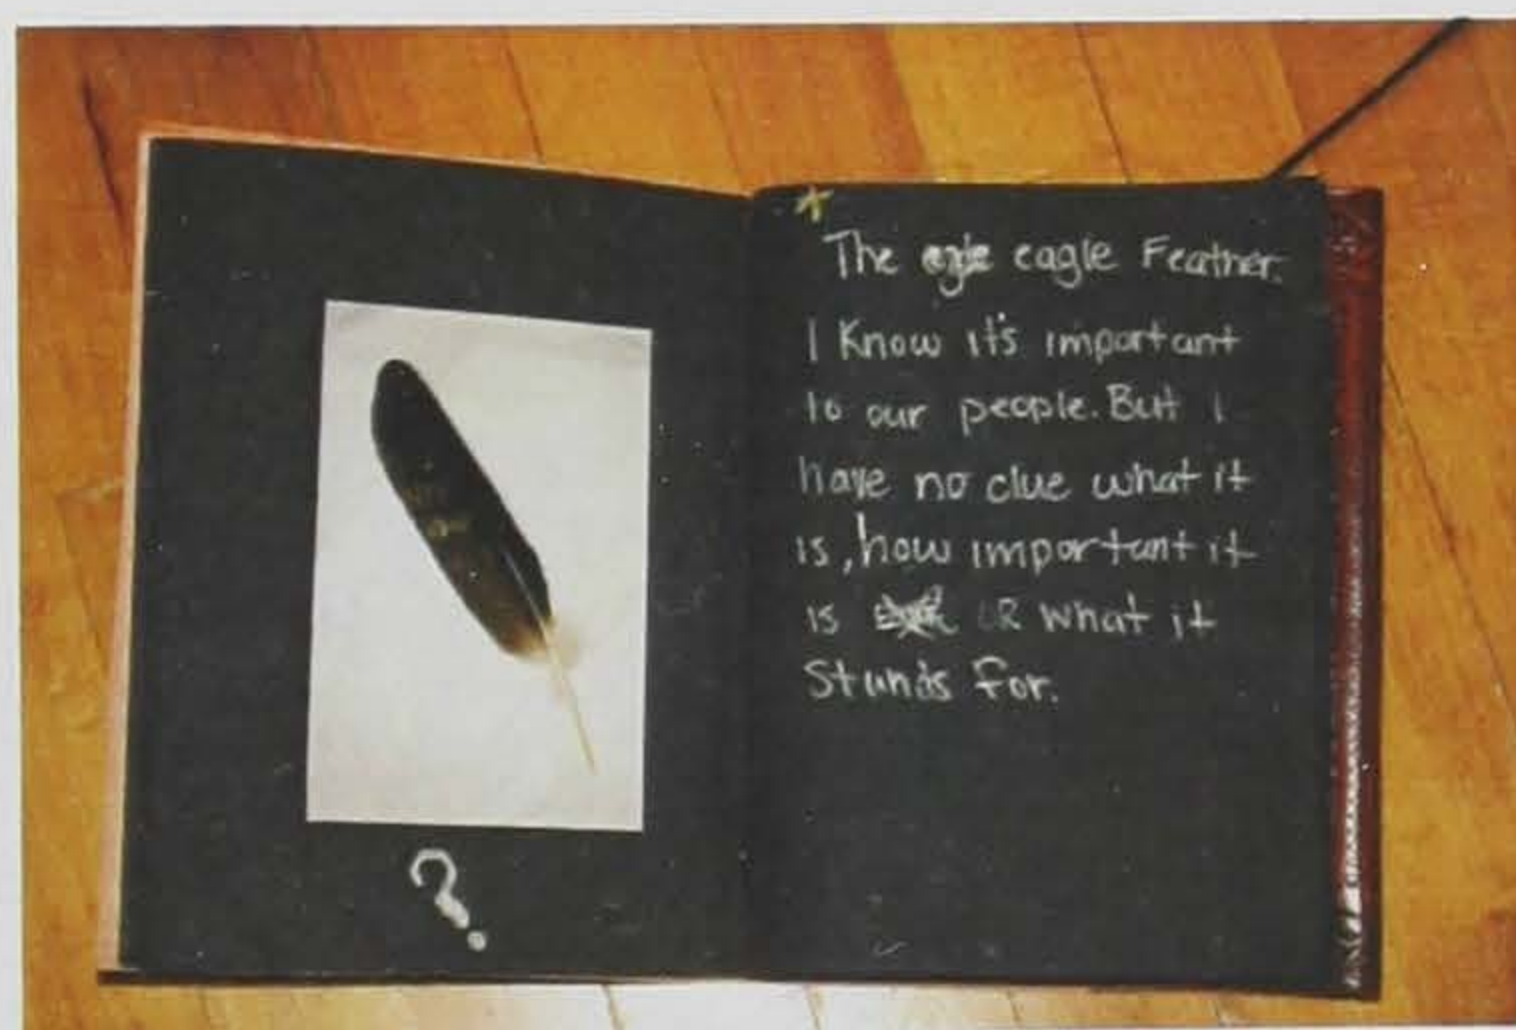 ?
The eagle Feather.
I Know it's important
to our people. But I
have no clue what it
is, how important it
is OR what it
Stands for.